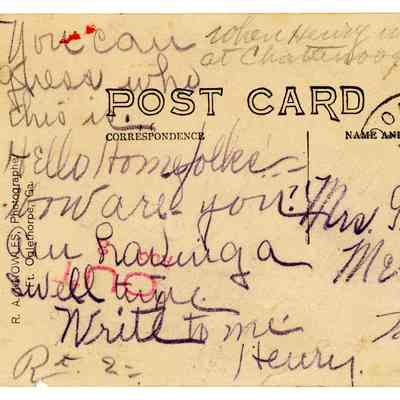 You can
guess who
this is.
when Henry
at Chattanooga
POST CARD
CORRESPONDENCE
NAME AN
Hello Homefolks
How are you?
am having a
well time.
Write to me
Henry.
Mrs.
Rt. 2
R. A. KNOWLES, Photographer
Ft. Oglethorpe, Ga.